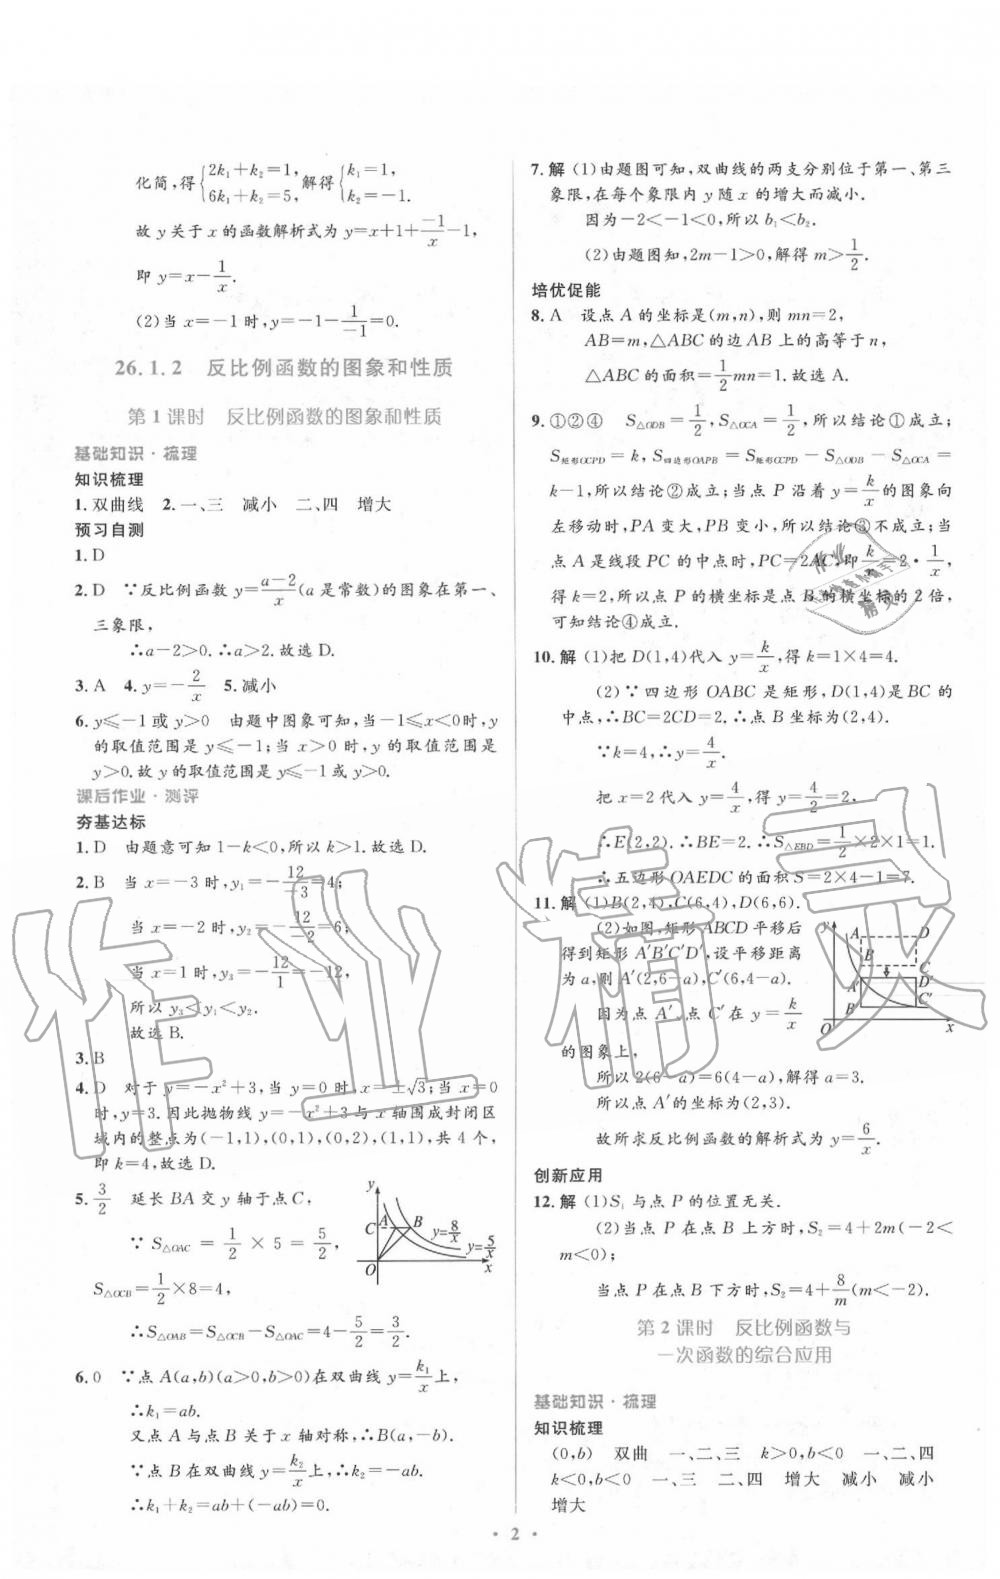 化简,得{2k₁+k₂=1, 6k₁+k₂=5, 解得{k₁=1, k₂=-1.
故 y 关于 x 的函数解析式为 y=x+1+\frac{-1}{x}-1,
即 y=x-\frac{1}{x}.
(2)当 x=-1 时,y=-1-\frac{1}{-1}=0.
26.1.2 反比例函数的图象和性质
第 1 课时 反比例函数的图象和性质
基础知识·梳理
知识梳理
1. 双曲线 2. 一、三 减小 二、四 增大
预习自测
1. D
2. D ∵反比例函数 y=\frac{a-2}{x}(a 是常数)的图象在第一、
三象限,
∴a-2>0.∴a>2.故选 D.
3. A 4. y=-\frac{2}{x} 5. 减小
6. y≤-1或 y>0 由题中图象可知,当-1≤x<0时,y
的取值范围是 y≤-1;当 x>0 时,y 的取值范围是
y>0.故 y 的取值范围是 y≤-1 或 y>0.
课后作业·测评
夯基达标
1. D 由题意可知 1-k<0,所以 k>1.故选 D.
2. B 当 x=-3 时,y₁=-\frac{12}{-3}=4;
当 x=-2 时,y₂=-\frac{12}{-2}=6;
当 x=1 时,y₃=-\frac{12}{1}=-12.
所以 y₃<y₁<y₂.
故选 B.
3. B
4. D 对于 y=-x²+3,当 y=0 时,x=±√3;当 x=0
时,y=3.因此抛物线 y=-x²+3 与 x 轴围成封闭区
域内的整点为(-1,1),(0,1),(0,2),(1,1),共 4 个,
即 k=4,故选 D.
5. \frac{3}{2} 延长 BA 交 y 轴于点 C,
∵ S△OAC = \frac{1}{2} × 5 = \frac{5}{2},
S△OCB=\frac{1}{2}×8=4,
∴S△OAB=S△OCB-S△OAC=4-\frac{5}{2}=\frac{3}{2}.
y C A B y=\frac{8}{x} y=\frac{5}{x} O x
6. 0 ∵点 A(a,b)(a>0,b>0)在双曲线 y=\frac{k₁}{x}上,
∴k₁=ab.
又点 A 与点 B 关于 x 轴对称,∴B(a,-b).
∵点 B 在双曲线 y=\frac{k₂}{x}上,∴k₂=-ab.
∴k₁+k₂=ab+(-ab)=0.
7. 解 (1)由题图可知,双曲线的两支分别位于第一、第三
象限,在每个象限内 y 随 x 的增大而减小.
因为-2<-1<0,所以 b₁<b₂.
(2)由题图知,2m-1>0,解得 m>\frac{1}{2}.
培优促能
8. A 设点 A 的坐标是(m,n),则 mn=2,
AB=m,△ABC 的边 AB 上的高等于 n,
△ABC 的面积=\frac{1}{2}mn=1.故选 A.
9. ①②④ S△ODB=\frac{1}{2},S△OCA=\frac{1}{2},所以结论①成立;
S矩形OCPD = k,S四边形OAPB = S矩形OCPD - S△ODB - S△OCA =
k-1,所以结论②成立;当点 P 沿着 y=\frac{k}{x}的图象向
左移动时,PA 变大,PB 变小,所以结论③不成立;当
点 A 是线段 PC 的中点时,PC=2AC,即\frac{k}{x}=2·\frac{1}{x},
得 k=2.所以点 P 的横坐标是点 B 的横坐标的 2 倍,
可知结论④成立.
10. 解 (1)把 D(1,4)代入 y=\frac{k}{x},得 k=1×4=4.
(2)∵四边形 OABC 是矩形,D(1,4)是 BC 的
中点,∴BC=2CD=2.∴点 B 坐标为(2,4).
∵k=4,∴y=\frac{4}{x}.
把 x=2 代入 y=\frac{4}{x},得 y=\frac{4}{2}=2.
∴E(2,2).∴BE=2.∴S△EBD=\frac{1}{2}×2×1=1.
∴五边形 OAEDC 的面积 S=2×4-1=7.
11. 解 (1)B(2,4),C(6,4),D(6,6).
(2)如图,矩形 ABCD 平移后
得到矩形 A′B′C′D′,设平移距离
为 a,则 A′(2,6-a),C′(6,4-a).
因为点 A′、点 C′在 y=\frac{k}{x}
的图象上,
y A D B C A′ D′ B′ C′ O x
所以 2(6-a)=6(4-a),解得 a=3.
所以点 A′的坐标为(2,3).
故所求反比例函数的解析式为 y=\frac{6}{x}.
创新应用
12. 解 (1)S₁ 与点 P 的位置无关.
(2)当点 P 在点 B 上方时,S₂=4+2m(-2<
m<0);
当点 P 在点 B 下方时,S₂=4+\frac{8}{m}(m<-2).
第 2 课时 反比例函数与
一次函数的综合应用
基础知识·梳理
知识梳理
(0,b) 双曲 一、二、三 k>0,b<0 一、二、四
k<0,b<0 一、三 二、四 增大 减小 减小
增大
· 2 ·
作业精灵